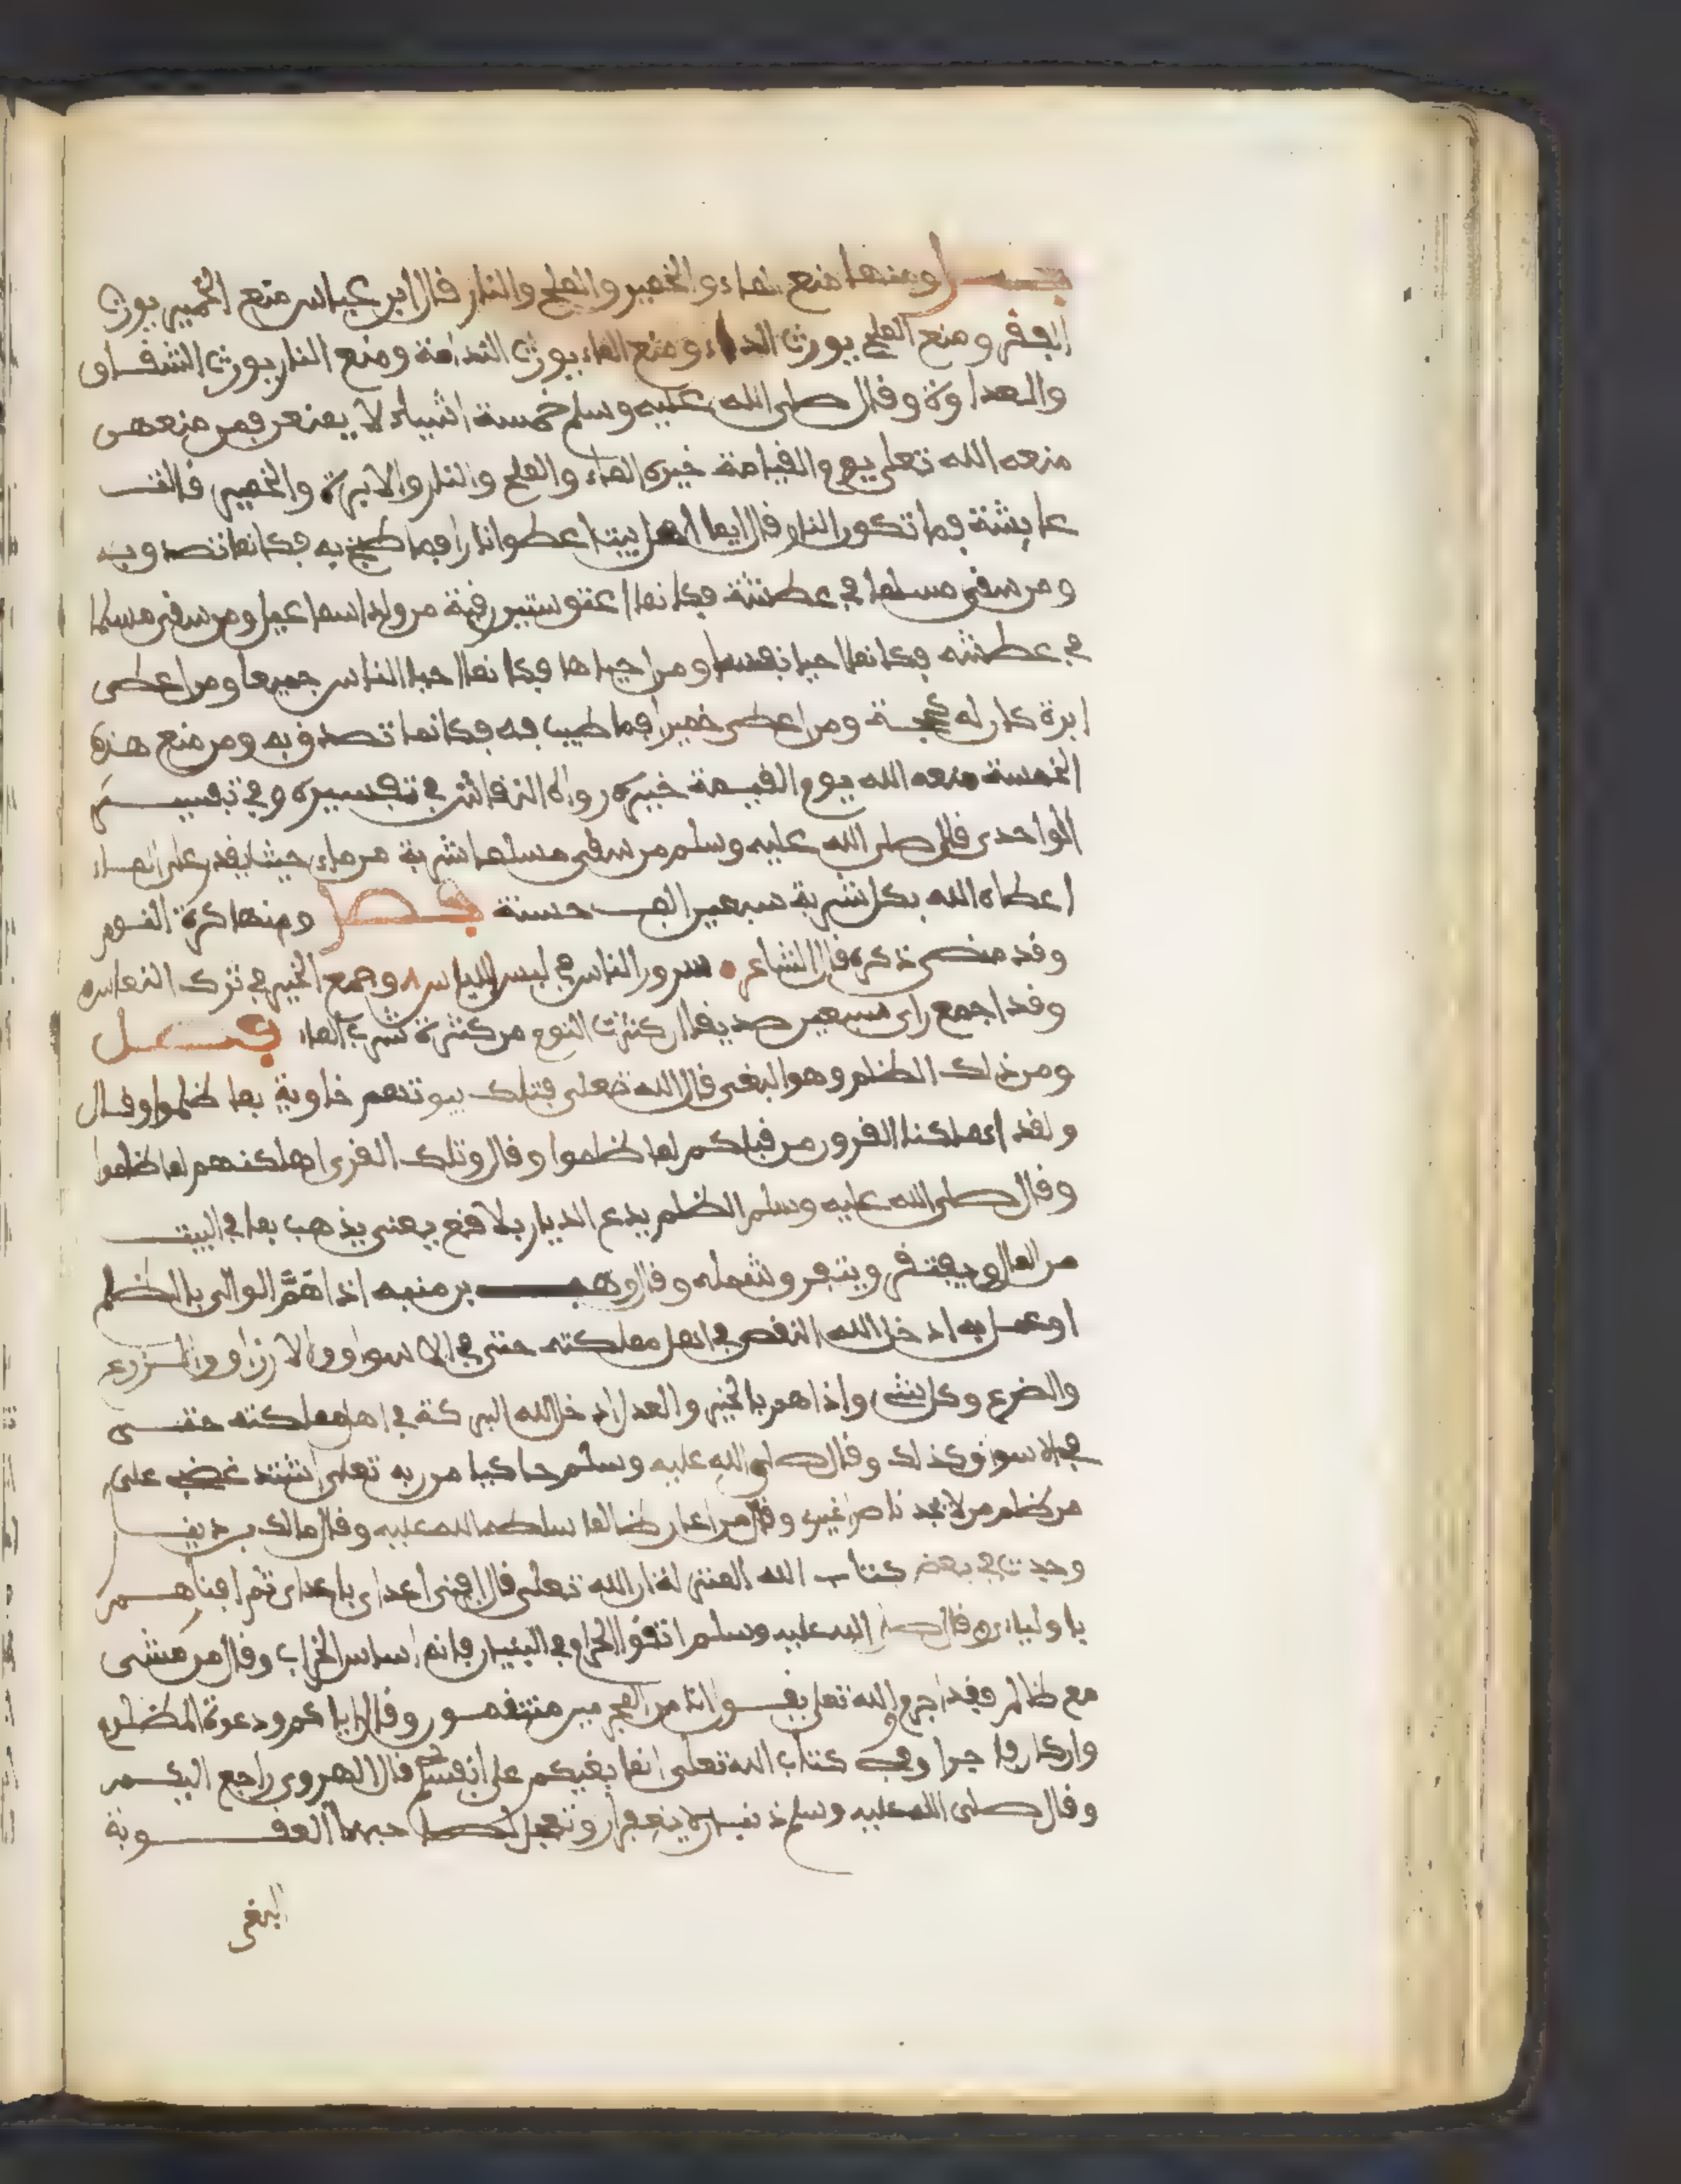 فصل ومنها منع الماء والخمير والملح والنار قال ابن عباس منع الخمير يورث
الفقر ومنع الملح يورث الداء ومنع الماء يورث الندامة ومنع النار يورث الشقاق
والعداوة وقال صلى الله عليه وسلم خمسة اشياء لا يمنعن فمن منعهن
منعه الله تعلى يوم القيامة خيره الماء والملح والنار والابرة والخمير قالت
عايشة فما تكون النار قال ايما اهل بيت اعطوا نارا فما طبخ به فكانما تصدق به
ومن سقى مسلما في عطشة فكانما اعتق ستين رقبة من ولد اسماعيل ومن سقى مسلما
في عطشه فكانما احيا نفسا ومن احياها فكانما احيا الناس جميعا ومن اعطى
ابرة كان له حجة ومن اعطى خميرا فما طيب فه فكانما تصدق به ومن منع هذه
الخمسة منعه الله يوم القيمة خيره رواه النقاش في تفسيره وفي تفسير
الواحدى قال صلى الله عليه وسلم من سقى مسلما شربة من ماء حيث يقدر على الماء
اعطاه الله بكل شربة سبعين الف حسنة فصل ومنها كثرة النوم
وقد مضى ذكره قال الشاعر سرور الناس في لبس اللباس وجمع الخير في ترك النعاس
وقد اجمع راى سبعين صديقا ان كثرت النوم من كثرة شرب الماء فصل
ومن ذلك الظلم وهو البغى قال الله تعلى فتلك بيوتهم خاوية بما ظلموا وقال
ولقد اهلكنا القرون من قبلكم لما ظلموا وقال وتلك القرى اهلكنهم لما ظلموا
وقال صلى الله عليه وسلم الظلم يدع الديار بلاقع يعنى يذهب بما في البيت
من المال ويفتقر ويتفرق شمله وقال وهب بن منبه اذا هم الوالى بالظلم
او عمل به ادخل الله النقص في اهل مملكته حتى في الاسواق والارزاق والزرع
والضرع وكل شىء واذا هم بالخير والعدل ادخل الله البركة في اهل مملكته حتى
في الاسواق كذلك وقال صلى الله عليه وسلم حاكيا من ربه تعلى اشتد غضبى على
من ظلم من لا يجد ناصرا غيرى وقال من اعان ظالما سلطه الله عليه وقال مالك بن دينر
وجدت في بعض كتاب الله المنزلة ان الله تعلى قال افنى اعداى باعداى ثم افناهم
باولياءى وقال صلى الله عليه وسلم اتقوا الحرام في البنيان فانه اساس الخراب وقال من مشى
مع ظالم فقد اجرم والله تعلى يقول انا من المجرمين منتقمون وقال اياكم ودعوة المظلوم
وان كان فاجرا وفي كتاب الله تعلى انما بغيكم على انفسكم قال الهروى راجع اليكم
وقال صلى الله عليه وسلم ذنبان لا يغفران وتعجل لصاحبهما العقوبة
البغى